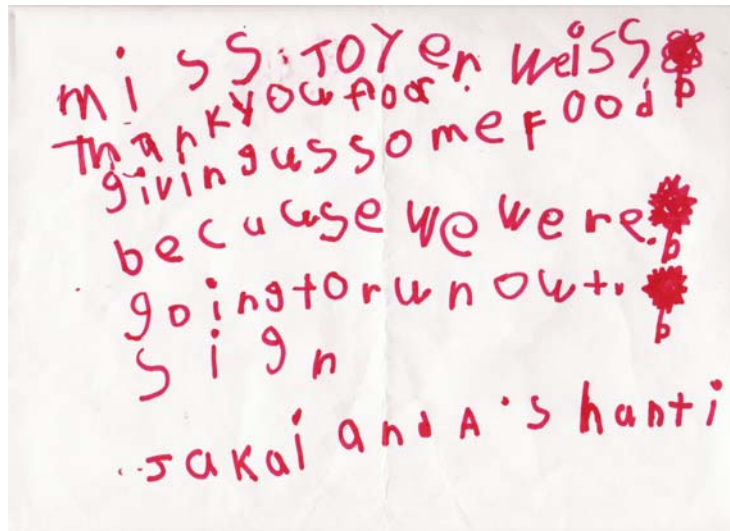 miss.JOYen weiss
Thankyou foor
givingussomeFood
becuuse we were.
goingtorunout.
sign
Jakai and A'shanti